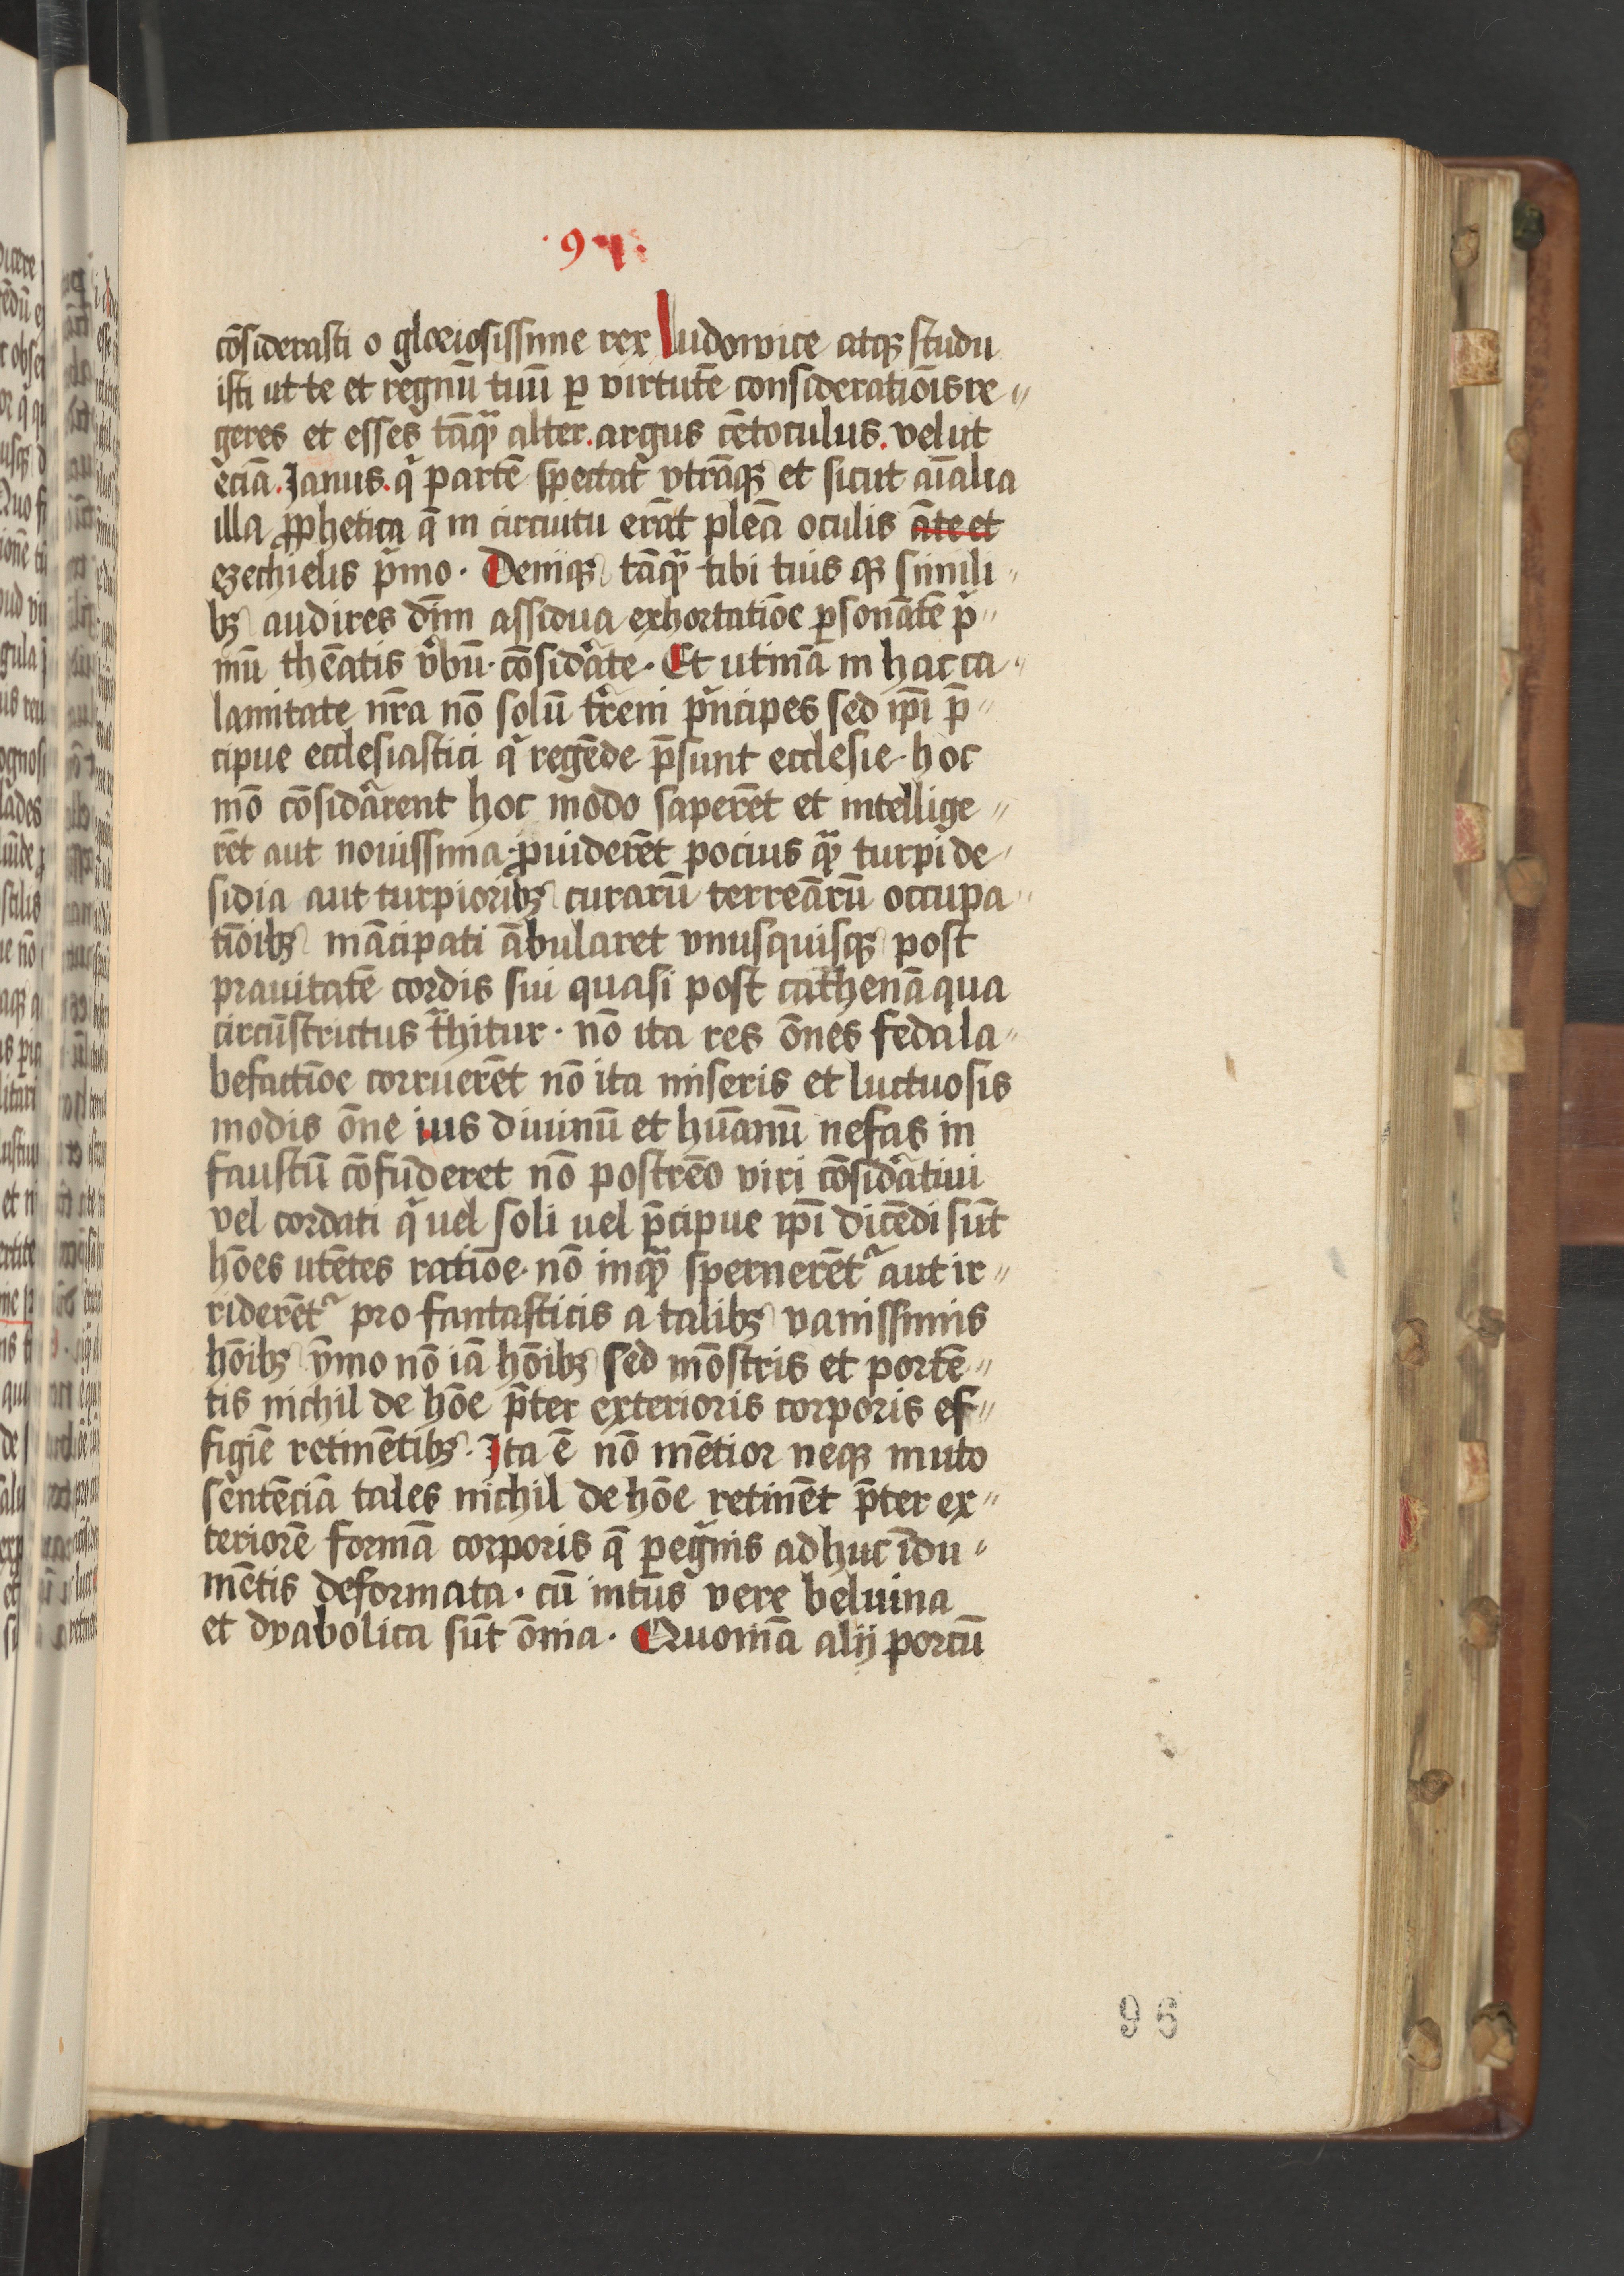 ·91·
cōsiderasti o gloriosissime rex Ludowice atqꝫ studu
isti ut te et regnū tuū ꝑ virtutē consideratiōis re〃
geres et esses tāqᷓ alter.argus cētoculus.velut
eciā.Ianus.qͥ partē spectatᷣ vtrāqꝫ et sicut aīalia
illa ꝓphetica q̄ in circuitu erāt pleā oculis āte et
ezechielis pͥmo· Deniqꝫ tāqᷓ tibi tuis qꝫ simili〃
bꝫ audires dn̄m assidua exhortatiōe ꝑsonātē pͥ〃
mū thēatis v̾bū· cōsid̾ate· Et utinā in hac ca〃
lamitate nr̄a nō solū t̾reni pͥncipes sed ip̄i p̄〃
cipue ecclesiastici qͥ regēde p̄sunt ecclesie· hoc
mō cōsid̾arent hoc modo saperēt et intellige〃
rēt aut nouissima ꝓuiderēt pocius qᷓ turpi de〃
sidia aut turpioribꝫ curarū terreārū occupa〃
tiōibꝫ mācipati ābularet vnusquisqꝫ post
prauitatē cordis sui quasi post cathenā qua
circūstrictus tᷓhitur· nō ita res ōnes feda la〃
befactiōe corruerēt nō ita miseris et luctuosis
modis ōne ius diuinū et hūanū nefas in
faustū cōfūderet nō postrēo viri cōsid̾atiui
vel cordati qͥ uel soli uel p̄cipue ip̄i dicēdi sūt
hōes utētes ratiōe· nō inqᷓ spernerētᷣ aut ir〃
riderētᷣ pro fantasticis a talibꝫ vanissimis
hōibꝫ ȳmo nō iā hōibꝫ sed mōstris et portē〃
tis nichil de hōe p̄ter exterioris corporis ef〃
figiē retinētibꝫ· Ita ē nō mētior neqꝫ muto
sentēciā tales nichil de hōe retinēt p̄ter ex〃
teriorē formā corporis q̄ ꝑegͥnis adhuc īdu〃
mētis deformata· cū intus vere beluina
et dyabolica sūt ōnia· Quoniā alij porcū
96